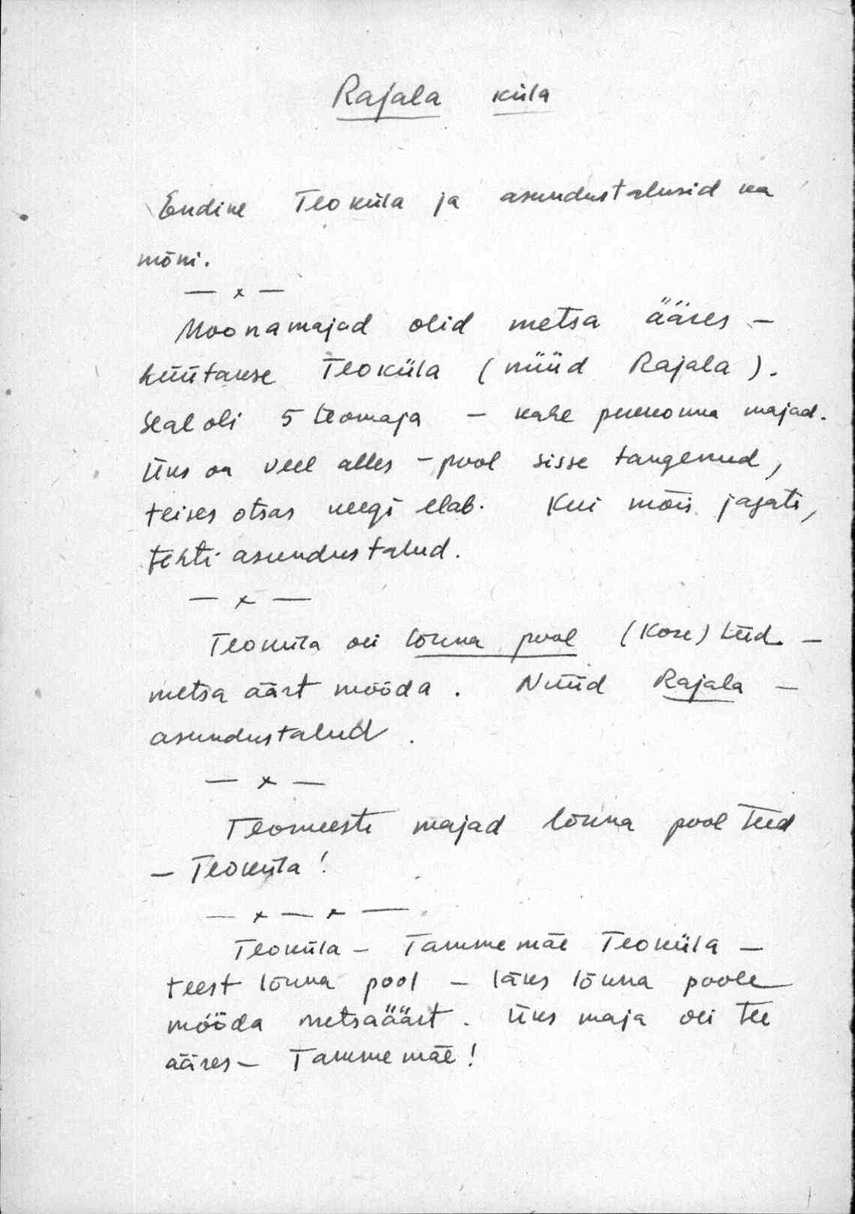 Rajala küla
Endine Teoküla ja asundustalusid ka
mõni.
— x —
Moonamajad olid metsa ääres –
hüütakse Teoküla (nüüd Rajala).
Seal oli 5 teomaja – kahe perekonna majad.
Üks on veel alles – pool sisse langenud,
teises otsas keegi elab. Kui mõis jagati,
tehti asundustalud.
— x —
Teoküla oli lõuna pool (Kose) teed –
metsa äärt mööda. Nüüd Rajala –
asundustalud.
— x —
Teomeeste majad lõuna pool teed
– Teoküla!
— x — x —
Teoküla – Tammemäe Teoküla –
teest lõuna pool – läks lõuna poole
mööda metsaäärt. Üks maja oli tee
ääres – Tammemäe!